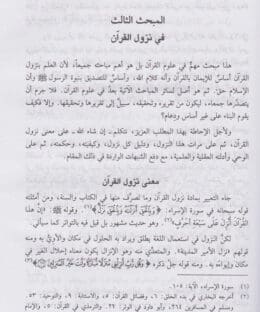 المبحث الثالث
في نزول القرآن
هذا مبحث مهم في علوم القرآن بل هو أهم مباحثه جميعاً، لأن العلم بنزول
القرآن أساس للإيمان بالقرآن وأنه كلام الله، وأساس للتصديق بنبوة الرسول ﷺ وأن
الإسلام حق. ثم هو أصل لسائر المباحث الآتية بعد في علوم القرآن. فلا جرم أن
يتصدرها جمعاء، ليكون من تقريره وتحقيقه، سبيل إلى تقريرها وتحقيقها. وإلا فكيف
يقوم البناء على غير أساس ودعام؟.
ولأجل الإحاطة بهذا المطلب العزيز، نتكلم- إن شاء الله- على معنى نزول
القرآن، ثم على مرات هذا النزول، ودليل كل نزول، وكيفيته، وحكمته، ثم على
الوحي وأدلته العقلية والعلمية، مع دفع الشبهات الواردة في ذلك المقام.
معنى نزول القرآن
جاء التعبير بمادة نزول القرآن وما تصرف منها في الكتاب والسنة، ومن أمثلته
قوله سبحانه في سورة الإسراء: ﴿وَبِالْحَقِّ أَنْزَلْنَاهُ وَبِالْحَقِّ نَزَلَ﴾(١)، وقوله ﷺ: «إن هذا
القرآن أنزل على سبعة أحرف»(٢)، وهو حديث مشهور بل قيل فيه بالتواتر كما سيأتي.
لكن النزول في استعمال اللغة يطلق ويراد به الحلول في مكان والأوي به ومنه
قولهم «نزل الأمير المدينة». والمتعدي منه وهو الإنزال يكون معناه إحلال الغير في
مكان وإيواءه به. ومنه قوله جل ذكره ﴿وَقُلْ رَبِّ أَنْزِلْنِي مُنْزَلًا مُبَارَكًا وَأَنْتَ خَيْرُ الْمُنْزِلِينَ﴾(٣)
(١) سورة الإسراء، الآية: ١٠٥.
(٢) أخرجه البخاري في بدء الخلق: ٦، وفضائل القرآن: ٥، والاستتابة: ٩، والتوحيد: ٥٣.